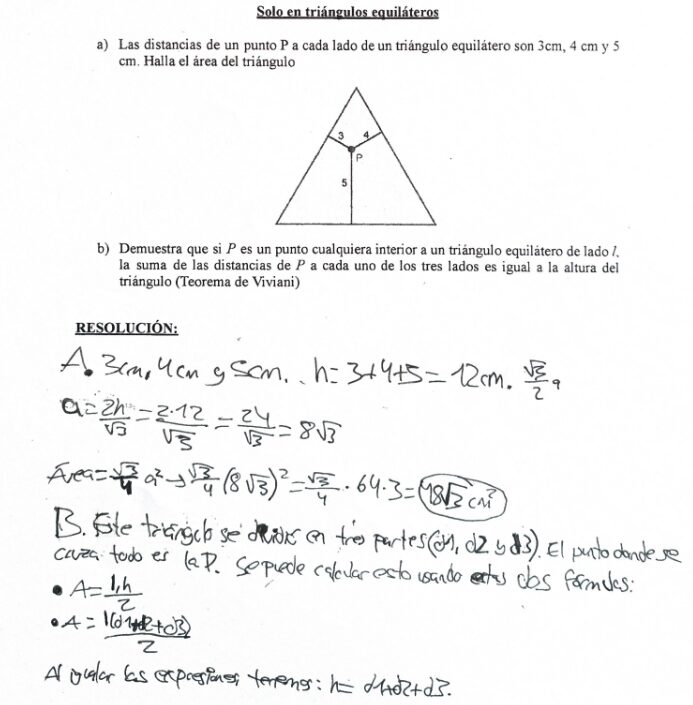 Solo en triángulos equiláteros
a) Las distancias de un punto P a cada lado de un triángulo equilátero son 3cm, 4 cm y 5
cm. Halla el área del triángulo
3 4
P
5
b) Demuestra que si P es un punto cualquiera interior a un triángulo equilátero de lado l,
la suma de las distancias de P a cada uno de los tres lados es igual a la altura del
triángulo (Teorema de Viviani)
RESOLUCIÓN:
A. 3cm, 4cm y 5cm. h=3+4+5=12cm. √3/2 a
a=2h/√3=2·12/√3=24/√3=8√3
Área=√3/4 a²→√3/4 (8√3)²=√3/4·64·3=48√3 cm²
B. Este triángulo se divide en tres partes (d1, d2 y d3). El punto donde se
cruza todo es la P. Se puede calcular esto usando estas dos fórmulas:
• A=l·h/2
• A=l(d1+d2+d3)/2
Al igualar las expresiones tenemos: h= d1+d2+d3.